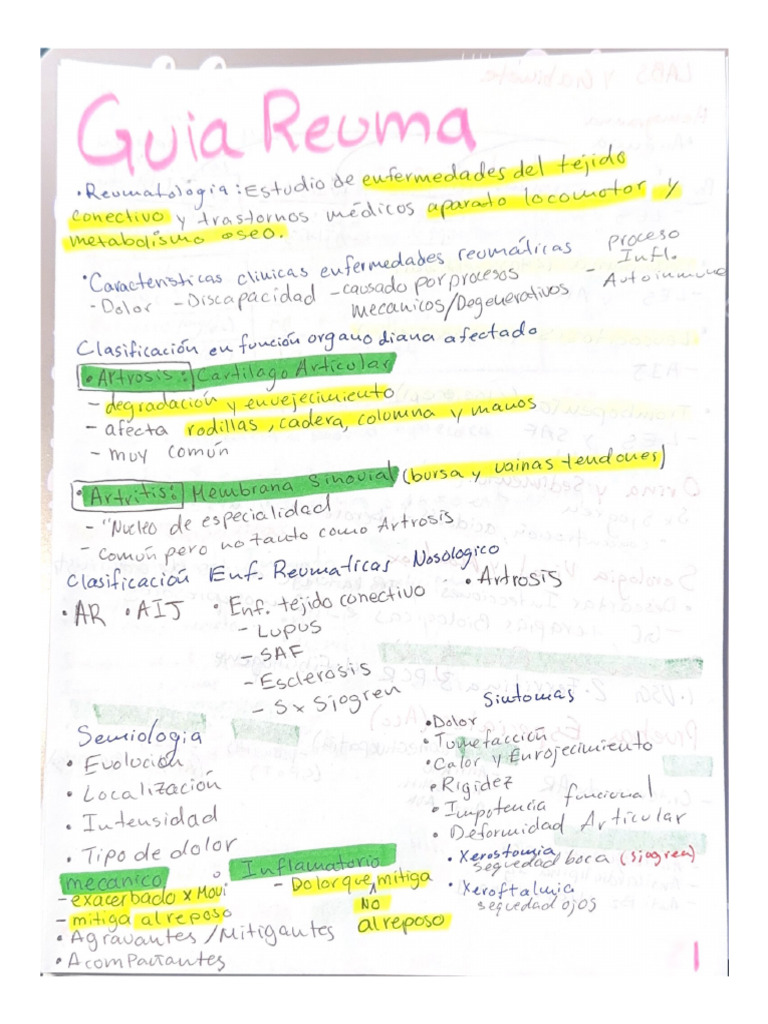 Guia Reuma
• Reumatologia: Estudio de enfermedades del tejido
conectivo y trastornos médicos aparato locomotor y
metabolismo oseo.
• Caracteristicas clinicas enfermedades reumáticas
- Dolor - Discapacidad - causado por procesos
mecanicos/Degenerativos
proceso
- Infl.
Autoinmune
Clasificación en función organo diana afectado
• Artrosis: Cartilago Articular
- degradación y envejecimiento
- afecta rodillas, cadera, columna y manos
- muy común
• Artritis: Membrana Sinovial (bursa y vainas tendones)
- "Nucleo de especialidad
- común pero no tanto como Artrosis
Clasificación Enf. Reumaticas Nosologico
• AR • AIJ • Enf. tejido conectivo • Artrosis
- Lupus
- SAF
- Esclerosis
- Sx Sjogren
Semiologia
• Evolución
• Localización
• Intensidad
• Tipo de dolor
mecanico
- exacerbado x Movi
- mitiga al reposo
Inflamatorio
- Dolor que mitiga
NO
al reposo
• Agravantes / Mitigantes
• Acompañantes
Sintomas
• Dolor
• Tumefacción
• Calor y Enrojecimiento
• Rigidez
• Impotencia funcional
• Deformidad Articular
• Xerostomia
sequedad boca (sjogren)
• Xeroftalmia
sequedad ojos
1